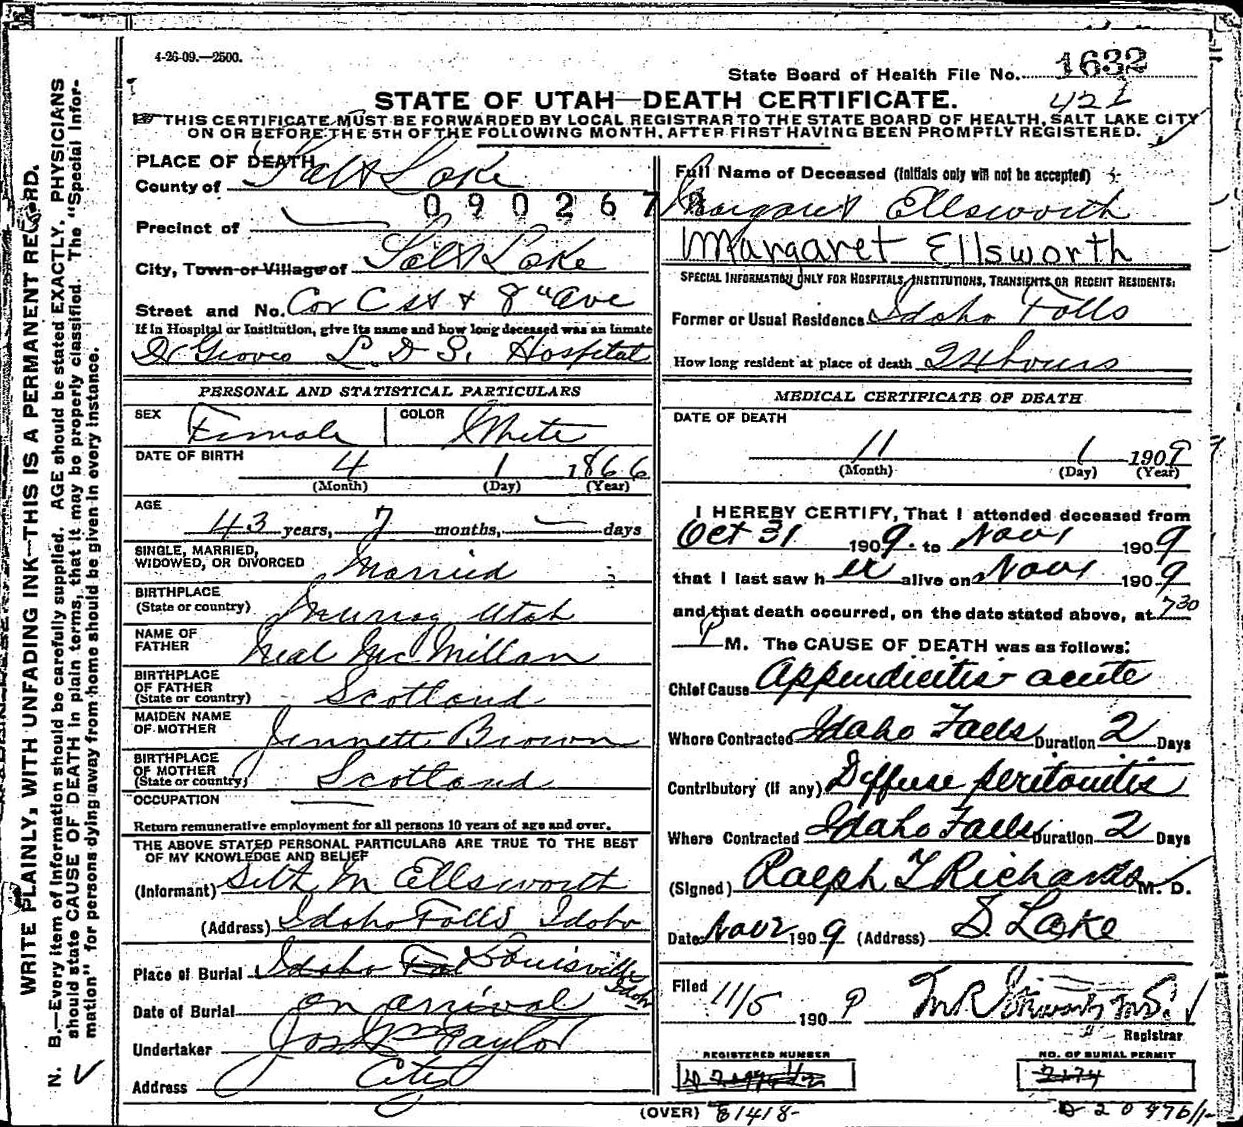 4-26-09.—2500.
State Board of Health File No. 1632
STATE OF UTAH—DEATH CERTIFICATE.
421
THIS CERTIFICATE MUST BE FORWARDED BY LOCAL REGISTRAR TO THE STATE BOARD OF HEALTH, SALT LAKE CITY
ON OR BEFORE THE 5TH OF THE FOLLOWING MONTH, AFTER FIRST HAVING BEEN PROMPTLY REGISTERED.
WRITE PLAINLY, WITH UNFADING INK—THIS IS A PERMANENT RECORD.
N. B.—Every item of information should be carefully supplied. AGE should be stated EXACTLY. PHYSICIANS
should state CAUSE OF DEATH in plain terms, that it may be properly classified. The "Special Infor-
mation" for persons dying away from home should be given in every instance.
PLACE OF DEATH
County of Salt Lake
090267
Precinct of
City, Town or Village of Salt Lake
Street and No. Cor C St & 8th Ave
If in Hospital or Institution, give its name and how long deceased was an inmate
Dr Groves L D S. Hospital
PERSONAL AND STATISTICAL PARTICULARS
SEX Female COLOR White
DATE OF BIRTH 4 1 1866
(Month) (Day) (Year)
AGE 43 years, 7 months, — days
SINGLE, MARRIED,
WIDOWED, OR DIVORCED Married
BIRTHPLACE
(State or country) Murray Utah
NAME OF
FATHER Neal McMillan
BIRTHPLACE
OF FATHER
(State or country) Scotland
MAIDEN NAME
OF MOTHER Jennette Brown
BIRTHPLACE
OF MOTHER
(State or country) Scotland
OCCUPATION
Return remunerative employment for all persons 10 years of age and over.
THE ABOVE STATED PERSONAL PARTICULARS ARE TRUE TO THE BEST
OF MY KNOWLEDGE AND BELIEF
(Informant) Seth M Ellsworth
(Address) Idaho Falls Idaho
Place of Burial Idaho Fal Louisville Idaho
Date of Burial on arrival
Undertaker Jos Wm Taylor
Address City
Full Name of Deceased (Initials only will not be accepted)
Margaret Ellsworth
Margaret Ellsworth
SPECIAL INFORMATION ONLY FOR HOSPITALS, INSTITUTIONS, TRANSIENTS OR RECENT RESIDENTS:
Former or Usual Residence Idaho Falls
How long resident at place of death 24 hours
MEDICAL CERTIFICATE OF DEATH
DATE OF DEATH
11 1 1909
(Month) (Day) (Year)
I HEREBY CERTIFY, That I attended deceased from
Oct 31 1909. to Nov 1 1909
that I last saw her alive on Nov 1 1909
and that death occurred, on the date stated above, at 7 30
P M. The CAUSE OF DEATH was as follows:
Chief Cause Appendicitis acute
Where Contracted Idaho Falls Duration 2 Days
Contributory (if any) Diffuse peritonitis
Where Contracted Idaho Falls Duration 2 Days
(Signed) Ralph T Richards M. D.
Date Nov 2 1909 (Address) S. Lake
Filed 11/5 1909
Registrar
REGISTERED NUMBER
NO. OF BURIAL PERMIT
2174
(OVER) 81418-
D 20476